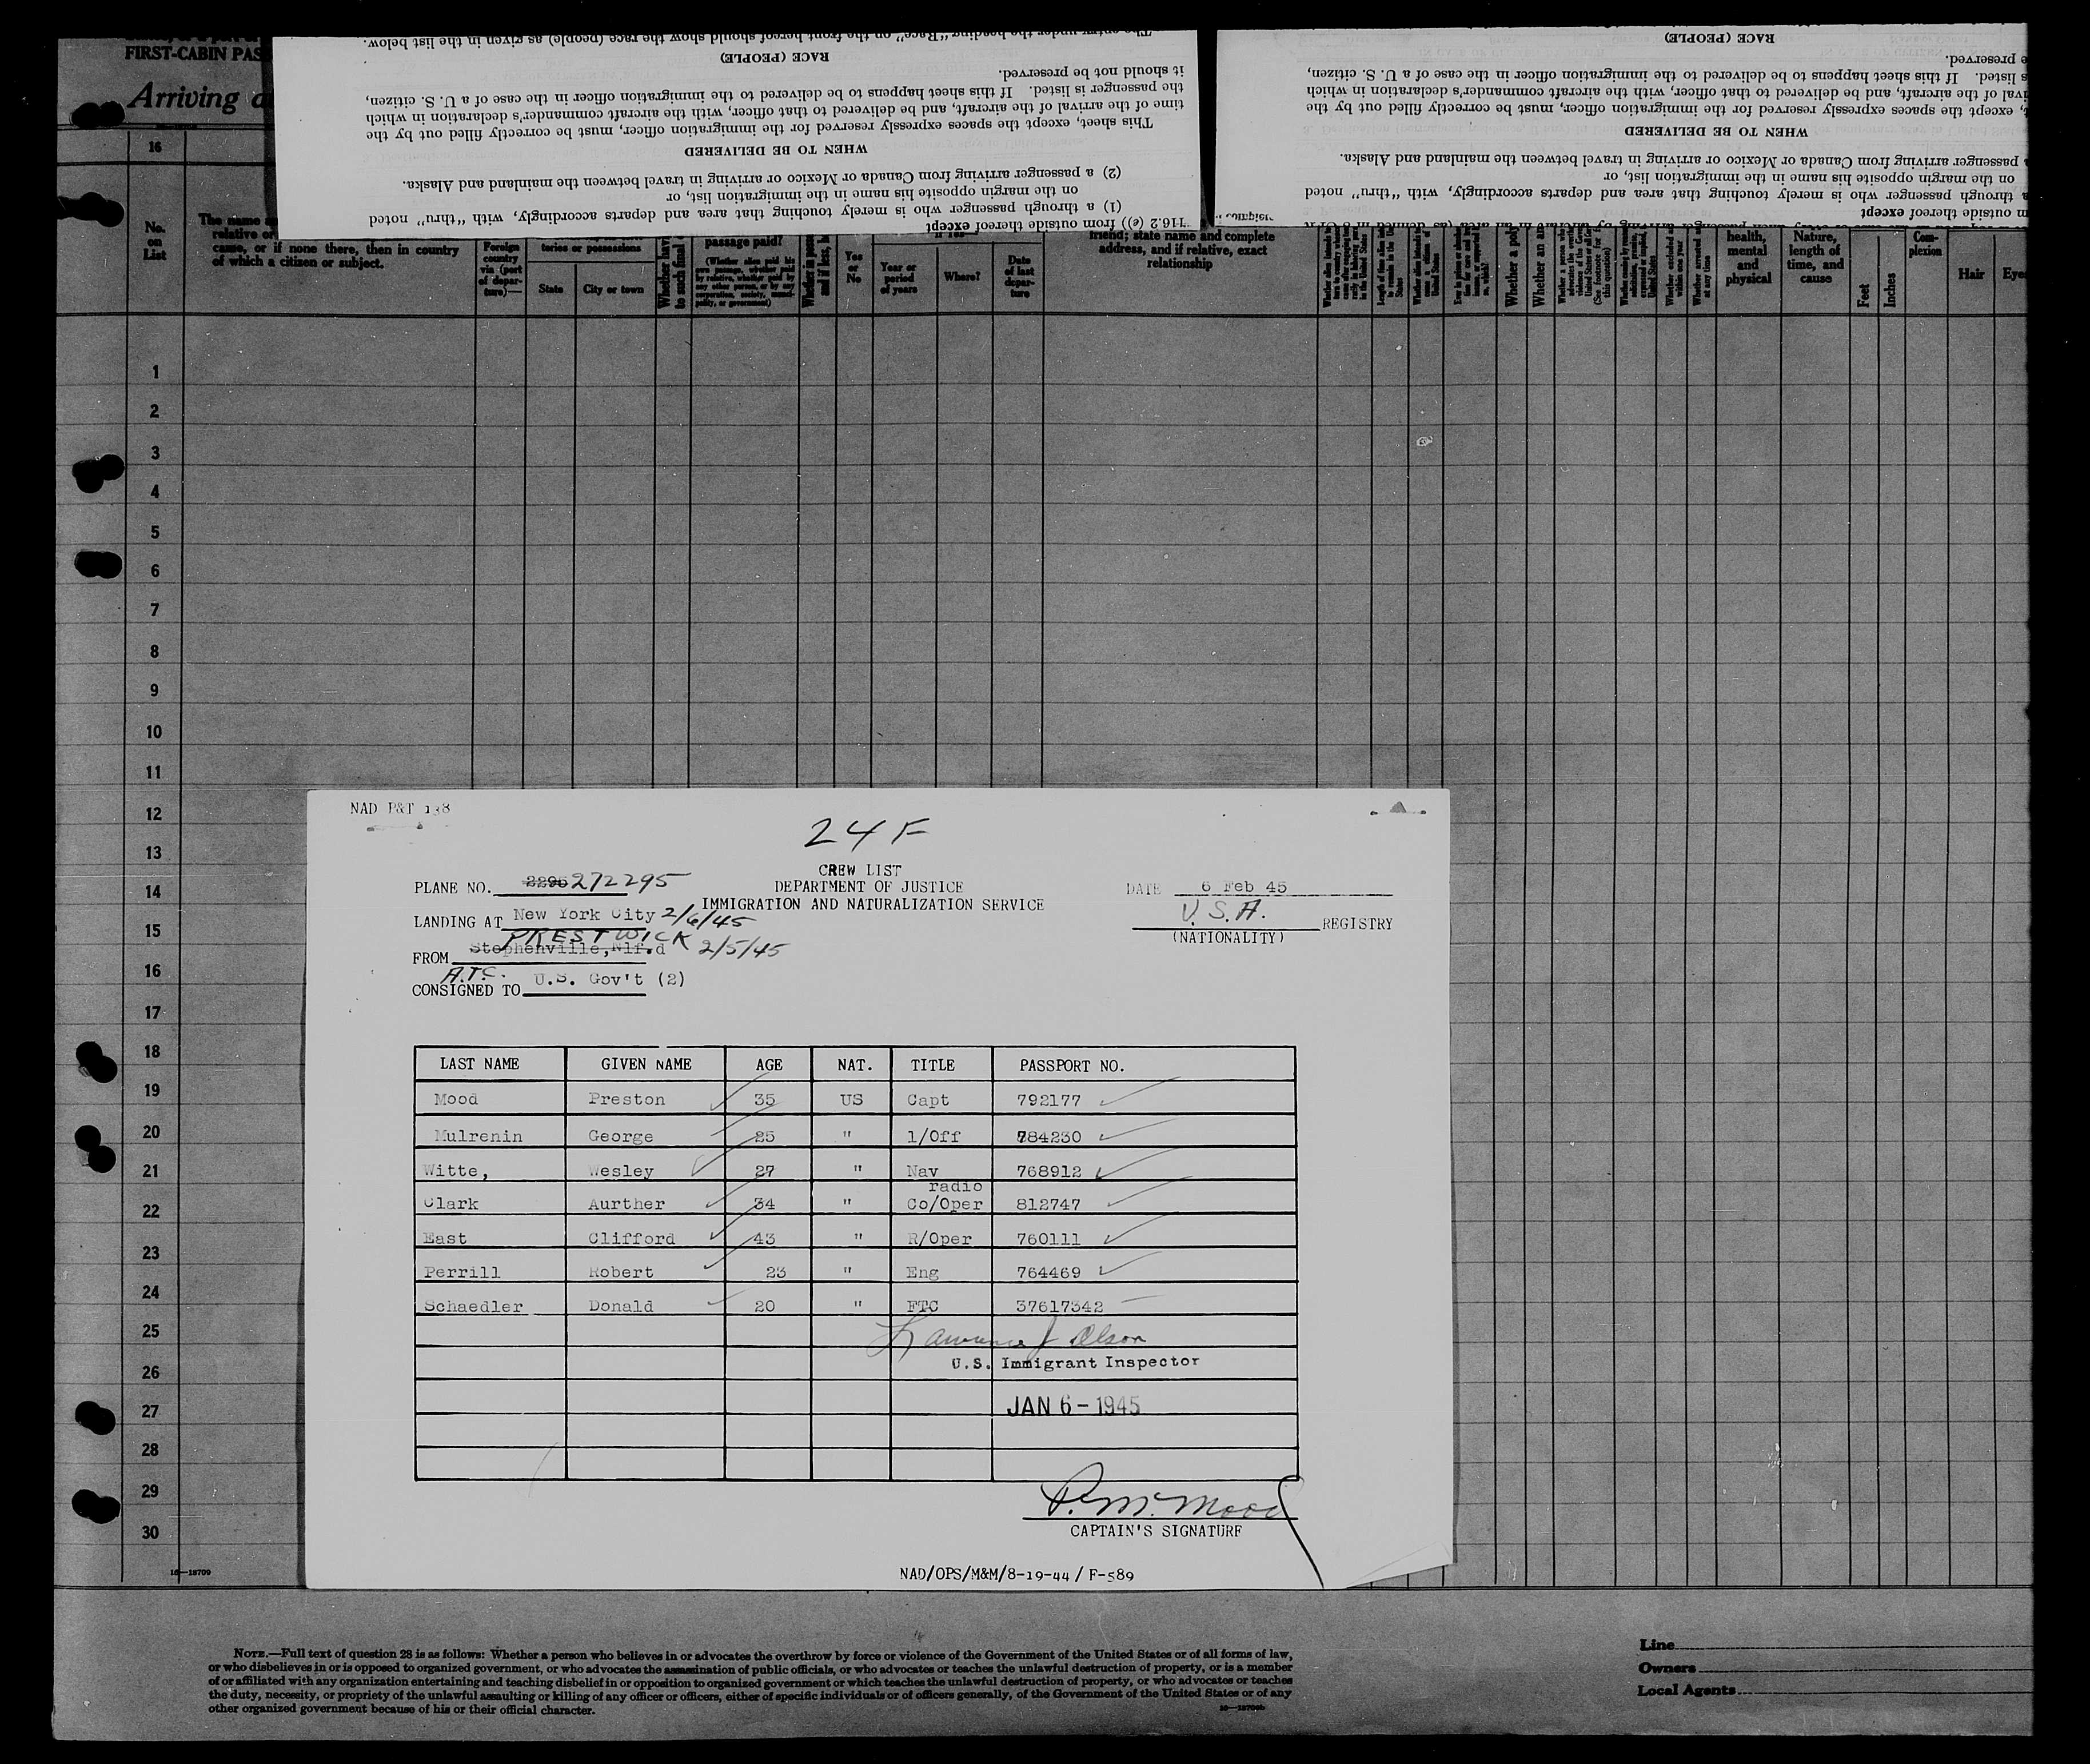 FIRST-CABIN PAS
Arriving a
16
No.
on
List
The name a
relative or
came, or if none there, then in country
of which a citizen or subject.
Foreign
country
via (port
of depar-
ture)—
tories or possessions
State
City or town
Whether hav
to such final
passage paid?
(Whether alien paid his
own passage, whether paid
by relative, whether paid by
any other person, or by any
corporation, society, munici-
pality, or government)
Yes
or
No
Year or
period
of years
Where?
Date
of last
depar-
ture
friend; state name and complete
address, and if relative, exact
relationship
Whether a poly
Whether an an
health,
mental
and
physical
Nature,
length of
time, and
cause
Feet
Inches
Com-
plexion
Hair
Eyes
The entry under the heading “Race” on the front hereof should show the race (people) as given in the list below.
RACE (PEOPLE)
it should not be preserved.
the passenger is listed. If this sheet happens to be delivered to the immigration officer in the case of a U. S. citizen,
time of the arrival of the aircraft, and be delivered to that officer, with the aircraft commander's declaration in which
This sheet, except the spaces expressly reserved for the immigration officer, must be correctly filled out by the
WHEN TO BE DELIVERED
(2) a passenger arriving from Canada or Mexico or arriving in travel between the mainland and Alaska.
on the margin opposite his name in the immigration list, or
(1) a through passenger who is merely touching that area and departs accordingly, with “thru” noted
116.2 (e)) from outside thereof except
RACE (PEOPLE)
e preserved.
s listed. If this sheet happens to be delivered to the immigration officer in the case of a U. S. citizen,
val of the aircraft, and be delivered to that officer, with the aircraft commander's declaration in which
, except the spaces expressly reserved for the immigration officer, must be correctly filled out by the
WHEN TO BE DELIVERED
a passenger arriving from Canada or Mexico or arriving in travel between the mainland and Alaska.
on the margin opposite his name in the immigration list, or
a through passenger who is merely touching that area and departs accordingly, with “thru” noted
m outside thereof except
1
2
3
4
5
6
7
8
9
10
11
12
13
14
15
16
17
18
19
20
21
22
23
24
25
26
27
28
29
30
16—18709
NAD P&T 138
24 F
CREW LIST
DEPARTMENT OF JUSTICE
IMMIGRATION AND NATURALIZATION SERVICE
PLANE NO. 2295 272295
DATE 6 Feb 45
LANDING AT New York City 2/6/45
U.S.A. REGISTRY
(NATIONALITY)
PRESTWICK 2/5/45
FROM Stephenville, Nlf.d
A.T.C.
CONSIGNED TO U.S. Gov't (2)
LAST NAME GIVEN NAME AGE NAT. TITLE PASSPORT NO.
Mood Preston 35 US Capt 792177
Mulrenin George 25 " 1/Off 784230
Witte, Wesley 27 " Nav 768912
radio
Clark Aurther 34 " Co/Oper 812747
East Clifford 43 " R/Oper 760111
Perrill Robert 23 " Eng 764469
Schaedler Donald 20 " FTC 37617342
Lawrence J Olson
U.S. Immigrant Inspector
JAN 6 - 1945
P. M. Mood
CAPTAIN'S SIGNATURE
NAD/OPS/M&M/8-19-44/ F-589
NOTE.—Full text of question 28 is as follows: Whether a person who believes in or advocates the overthrow by force or violence of the Government of the United States or of all forms of law,
or who disbelieves in or is opposed to organized government, or who advocates the assassination of public officials, or who advocates or teaches the unlawful destruction of property, or is a member
of or affiliated with any organization entertaining and teaching disbelief in or opposition to organized government or which teaches the unlawful destruction of property, or who advocates or teaches
the duty, necessity, or propriety of the unlawful assaulting or killing of any officer or officers, either of specific individuals or of officers generally, of the Government of the United States or of any
other organized government because of his or their official character.
Line
Owners
Local Agents